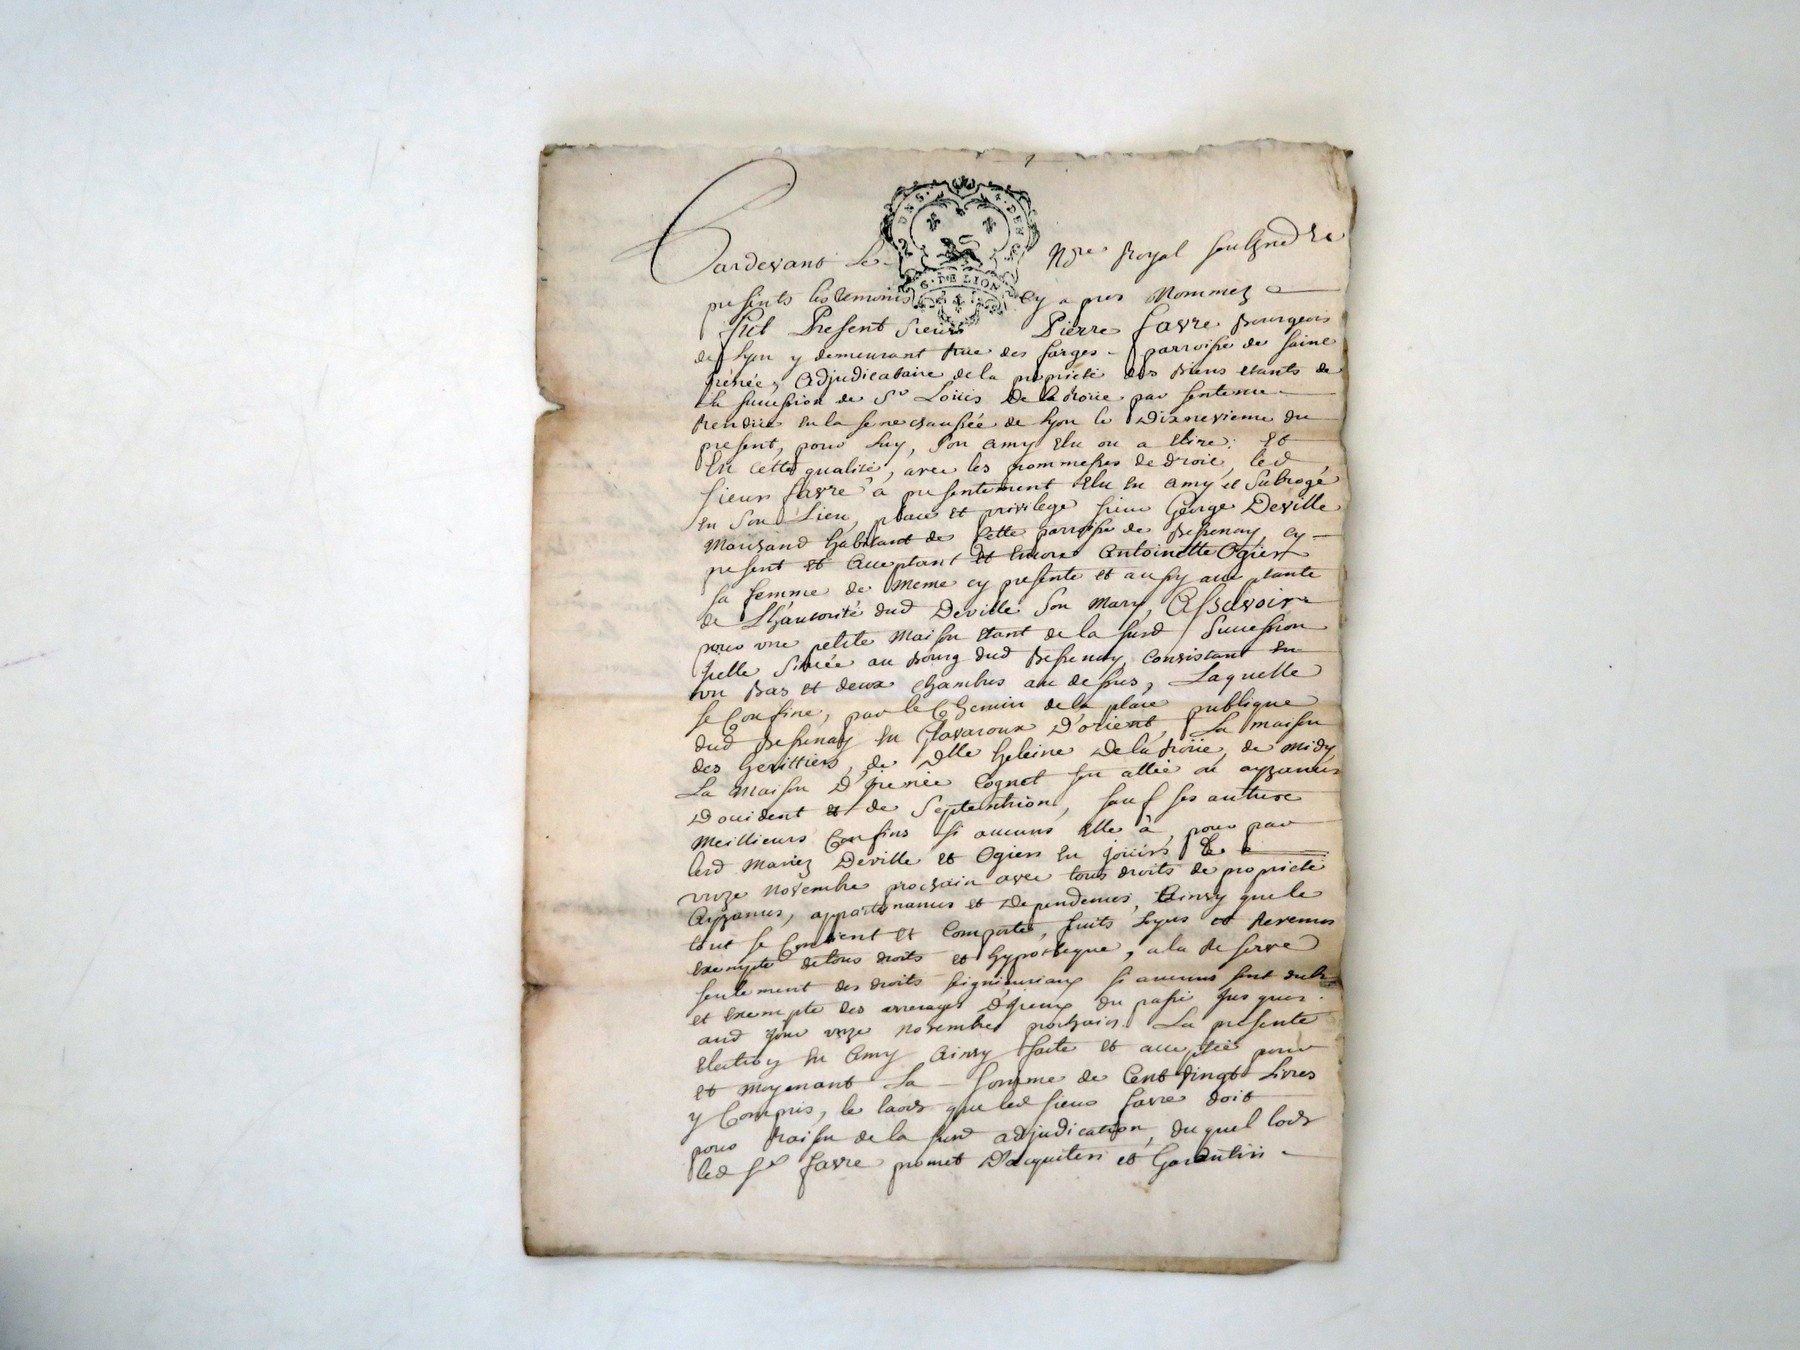 DES. 4. DEN
G. DE LION
Pardevant Le Nore Royal soubsigné Et
presents les temoins Cy apres Nommez
fut Present sieur Pierre favre Bourgeois
de Lyon y demeurant Rue des farges parroisse de saint
Irenée, Adjudicataire de la proprieté des Biens étants de
la succession de Sr Loüis De la Roüe par sentence
Rendüe En la senechaussée de Lyon le Dixneuvieme du
present, pour Luy, son amy Elu ou a Elire: Et
En cette qualité, avec les prommesses de droit, led
sieur favre à presentement Elu En amy et subrogé
En son Lieu, place et privilege sieur George Deville
Marchand habitant de Cette parroisse de Bessenay, cy
present et acceptant et Encore Antoinette Ogier
sa femme de meme cy presente et aussy acceptante
de L'hautorité dud Deville son Mary, Assavoir
pour vne petite Maison Etant de la susd succession
Icelle Sitüée au Bourg dud Bessenay, Consistant En
vn Bas et deux chambres au dessus, Laquelle
se Confine, par le Chemin de la place publique
dud Bessenay En D'orient, La maison
des heritiers, de Dlle heleine De la Roüe, de midy,
La Maison D'irenée Cognet son allié ou ayzances
D'occident et de Septentrion, sauf ses autres
Meillieurs Confins si aucuns Elle à, pour par
lesd Mariez Deville et Ogier En joüir Le
vnze Novembre prochain avec tous droits de proprieté
Ayzances, appartenances et Dependences, Ainsy que le
tout se Contient et Comporte, fruits Loyers et Revenus
Exempte de tous droits et hypotheque, a la Reserve
seulement des droits seigneuriaux si aucuns sont dubs
et Exempte des arrerages D'iceux du passé Jusques
aud jour vnze novembre prochain. La presente
Election En Amy Ainsy faite et acceptée pour
et moyenant La somme de Cent vingt Livres
y Compris, le laods que led sieur favre doit
pour Raison de la susd adjudication, duquel lods
led Sr favre promet D'acquiter et Garentir